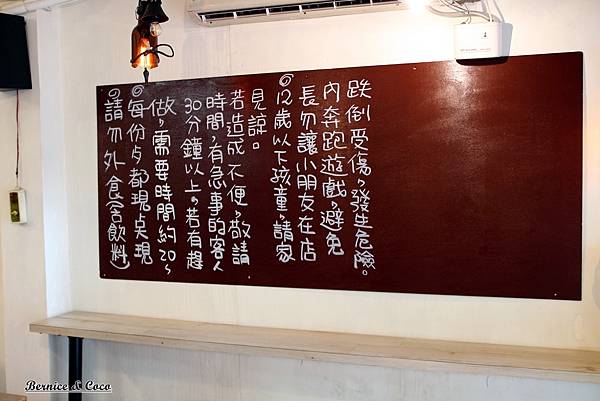 ◎請勿外食(含飲料)
◎每份夕都現点現
做,需要時間約20~
30分鐘以上。若有趕
時間,有急事的客人
若造成不便,敬請
見諒。
◎12歲以下孩童,請家
長勿讓小朋友在店
內奔跑遊戲,避免
跌倒受傷,發生危險。
Bernice & Coco